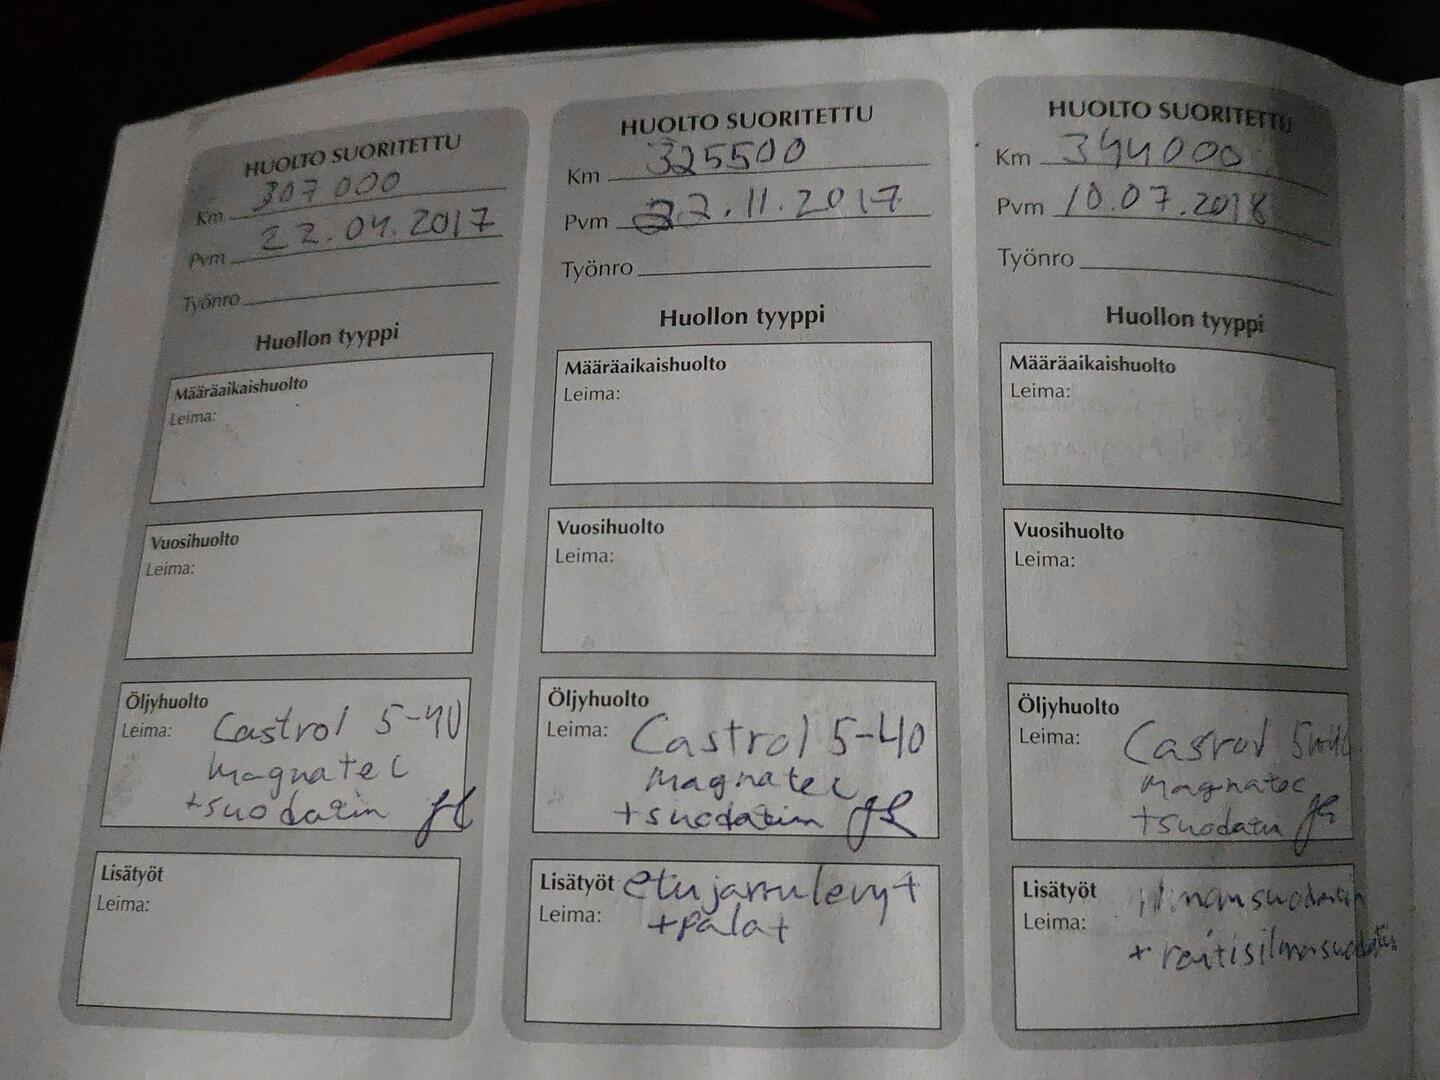 HUOLTO SUORITETTU
Km 307 000
Pvm 22.04.2017
Työnro
Huollon tyyppi
Määräaikaishuolto
Leima:
Vuosihuolto
Leima:
Öljyhuolto
Leima: Castrol 5-40
magnatec
+suodatin
Lisätyöt
Leima:
HUOLTO SUORITETTU
Km 325500
Pvm 22.11.2017
Työnro
Huollon tyyppi
Määräaikaishuolto
Leima:
Vuosihuolto
Leima:
Öljyhuolto
Leima: Castrol 5-40
magnatec
+suodatin
Lisätyöt etujarrulevyt
Leima: +palat
HUOLTO SUORITETTU
Km 344000
Pvm 10.07.2018
Työnro
Huollon tyyppi
Määräaikaishuolto
Leima:
Vuosihuolto
Leima:
Öljyhuolto
Leima: Castrol
magnatec
+suodatin
Lisätyöt ilmansuodatin
Leima: + raitisilmasuodatin